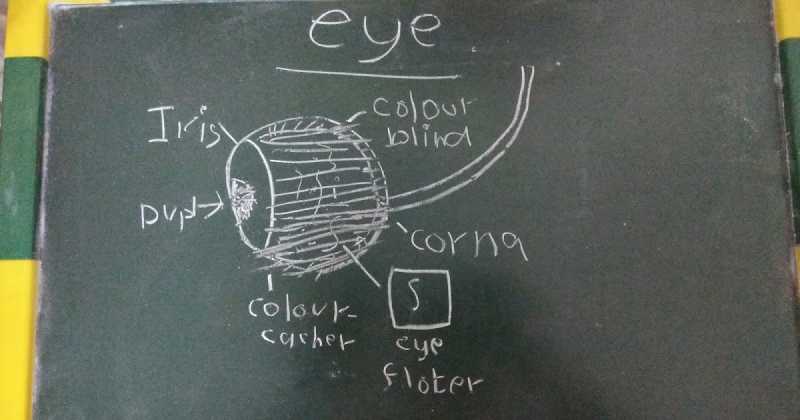 eye
Iris
colour
blind
pupl
corna
colour-
cacher
S
eye
floter